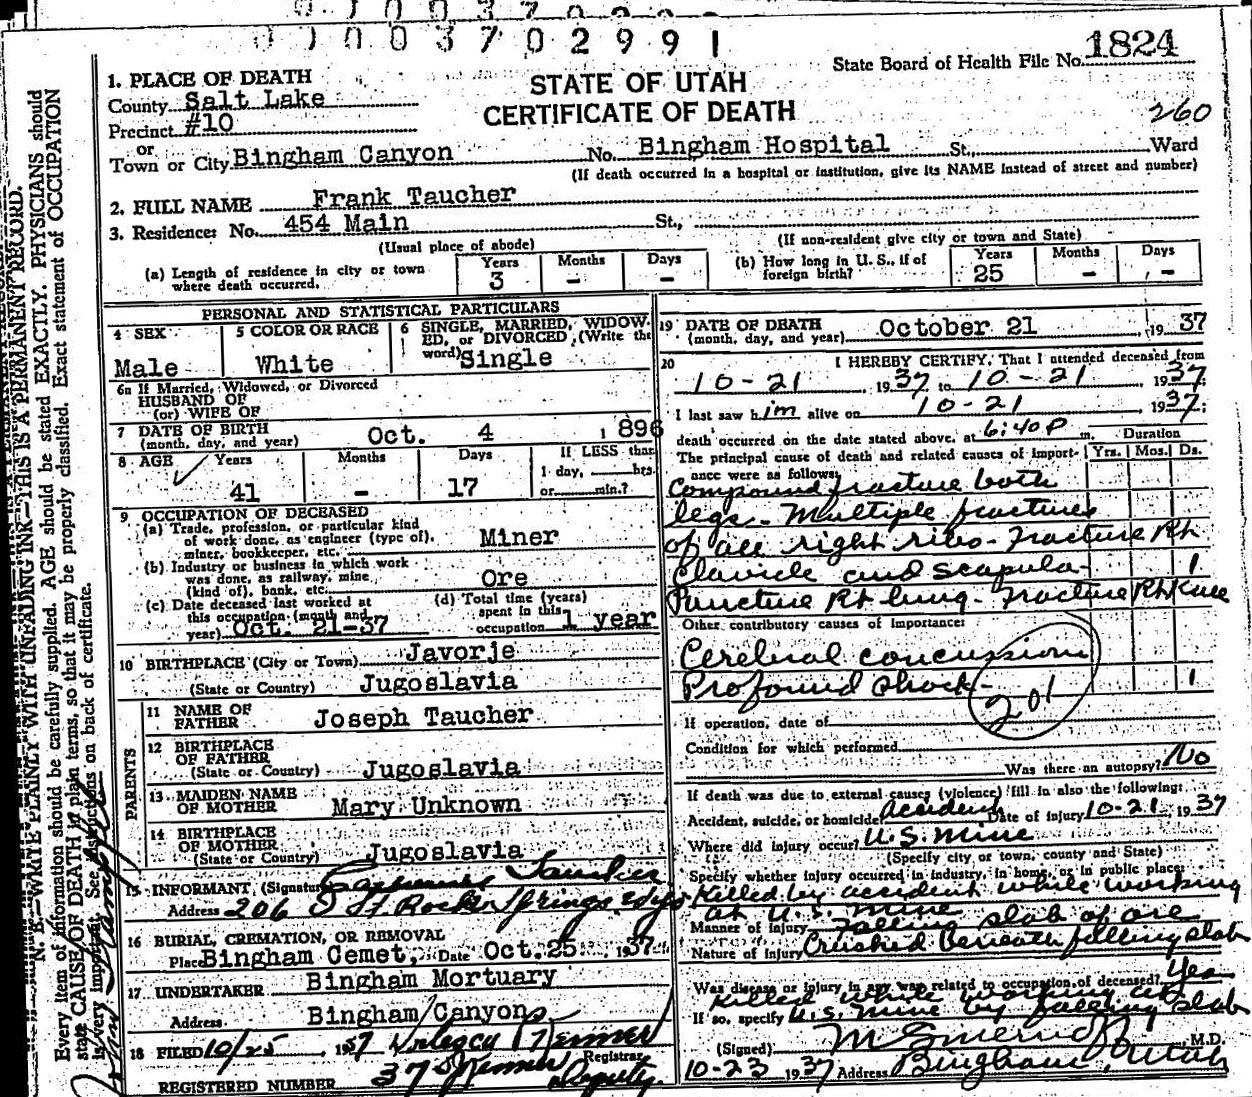 0 1 0 0 3 7 0 2 9 9 1
State Board of Health File No. 1824
STATE OF UTAH
CERTIFICATE OF DEATH
260
1. PLACE OF DEATH
County Salt Lake
Precinct #10
or
Town or City Bingham Canyon No. Bingham Hospital St., Ward
(If death occurred in a hospital or institution, give its NAME instead of street and number)
2. FULL NAME Frank Taucher
3. Residence: No. 454 Main St.,
(Usual place of abode) (If non-resident give city or town and State)
(a) Length of residence in city or town where death occurred. Years 3 Months - Days -
(b) How long in U. S., if of foreign birth? Years 25 Months - Days -
PERSONAL AND STATISTICAL PARTICULARS
4 SEX Male
5 COLOR OR RACE White
6 SINGLE, MARRIED, WIDOWED, or DIVORCED (Write the word) Single
6a If Married, Widowed, or Divorced
HUSBAND OF
(or) WIFE OF
7 DATE OF BIRTH (month, day, and year) Oct. 4 1896
8 AGE Years 41 Months - Days 17 If LESS than 1 day, hrs. or min.?
9 OCCUPATION OF DECEASED
(a) Trade, profession, or particular kind of work done, as engineer (type of), miner, bookkeeper, etc. Miner
(b) Industry or business in which work was done, as railway, mine (kind of), bank, etc. Ore
(c) Date deceased last worked at this occupation (month and year) Oct. 21-37
(d) Total time (years) spent in this occupation 1 year
10 BIRTHPLACE (City or Town) Javorje
(State or Country) Jugoslavia
PARENTS
11 NAME OF FATHER Joseph Taucher
12 BIRTHPLACE OF FATHER (State or Country) Jugoslavia
13 MAIDEN NAME OF MOTHER Mary Unknown
14 BIRTHPLACE OF MOTHER (State or Country) Jugoslavia
15 INFORMANT (Signature) Taucher
Address 206 St. Rock Springs, Wyo
16 BURIAL, CREMATION, OR REMOVAL
Place Bingham Cemet, Date Oct. 25 1937
17 UNDERTAKER Bingham Mortuary
Address Bingham Canyon
18 FILED 10/25, 1937
Registrar
REGISTERED NUMBER 37 Deputy.
19 DATE OF DEATH (month, day, and year) October 21 1937
20 I HEREBY CERTIFY, That I attended deceased from
10-21 1937 to 10-21, 1937;
I last saw him alive on 10-21 1937;
death occurred on the date stated above, at 6:40 P m. Duration
The principal cause of death and related causes of importance were as follows: Yrs. Mos. Ds.
Compound fracture both
legs - Multiple fractures
of all right ribs - Fracture Rt
Clavicle and scapula - 1
Puncture Rt lung - Fracture Rt Knee
Other contributory causes of importance:
Cerebral concussion
Profound shock - 1
201
If operation, date of
Condition for which performed
Was there an autopsy? No
If death was due to external causes (violence) fill in also the following:
Accident, suicide, or homicide Accident Date of injury 10-21, 1937
Where did injury occur? U.S. Mine
(Specify city or town, county and State)
Specify whether injury occurred in industry, in home, or in public place:
Killed by accident while working
at U.S. Mine
Manner of injury Falling slab of ore
Nature of injury Crushed Beneath falling slab
Was disease or injury in any way related to occupation of deceased? Yes
Killed while working at
If so, specify U.S. Mine by falling slab
(Signed) M.D.
10-23 1937 Address Bingham, Utah
N. B.—WRITE PLAINLY WITH UNFADING INK—THIS IS A PERMANENT RECORD.
Every item of information should be carefully supplied. AGE should be stated EXACTLY. PHYSICIANS should
state CAUSE OF DEATH in plain terms, so that it may be properly classified. Exact statement of OCCUPATION
is very important. See instructions on back of certificate.